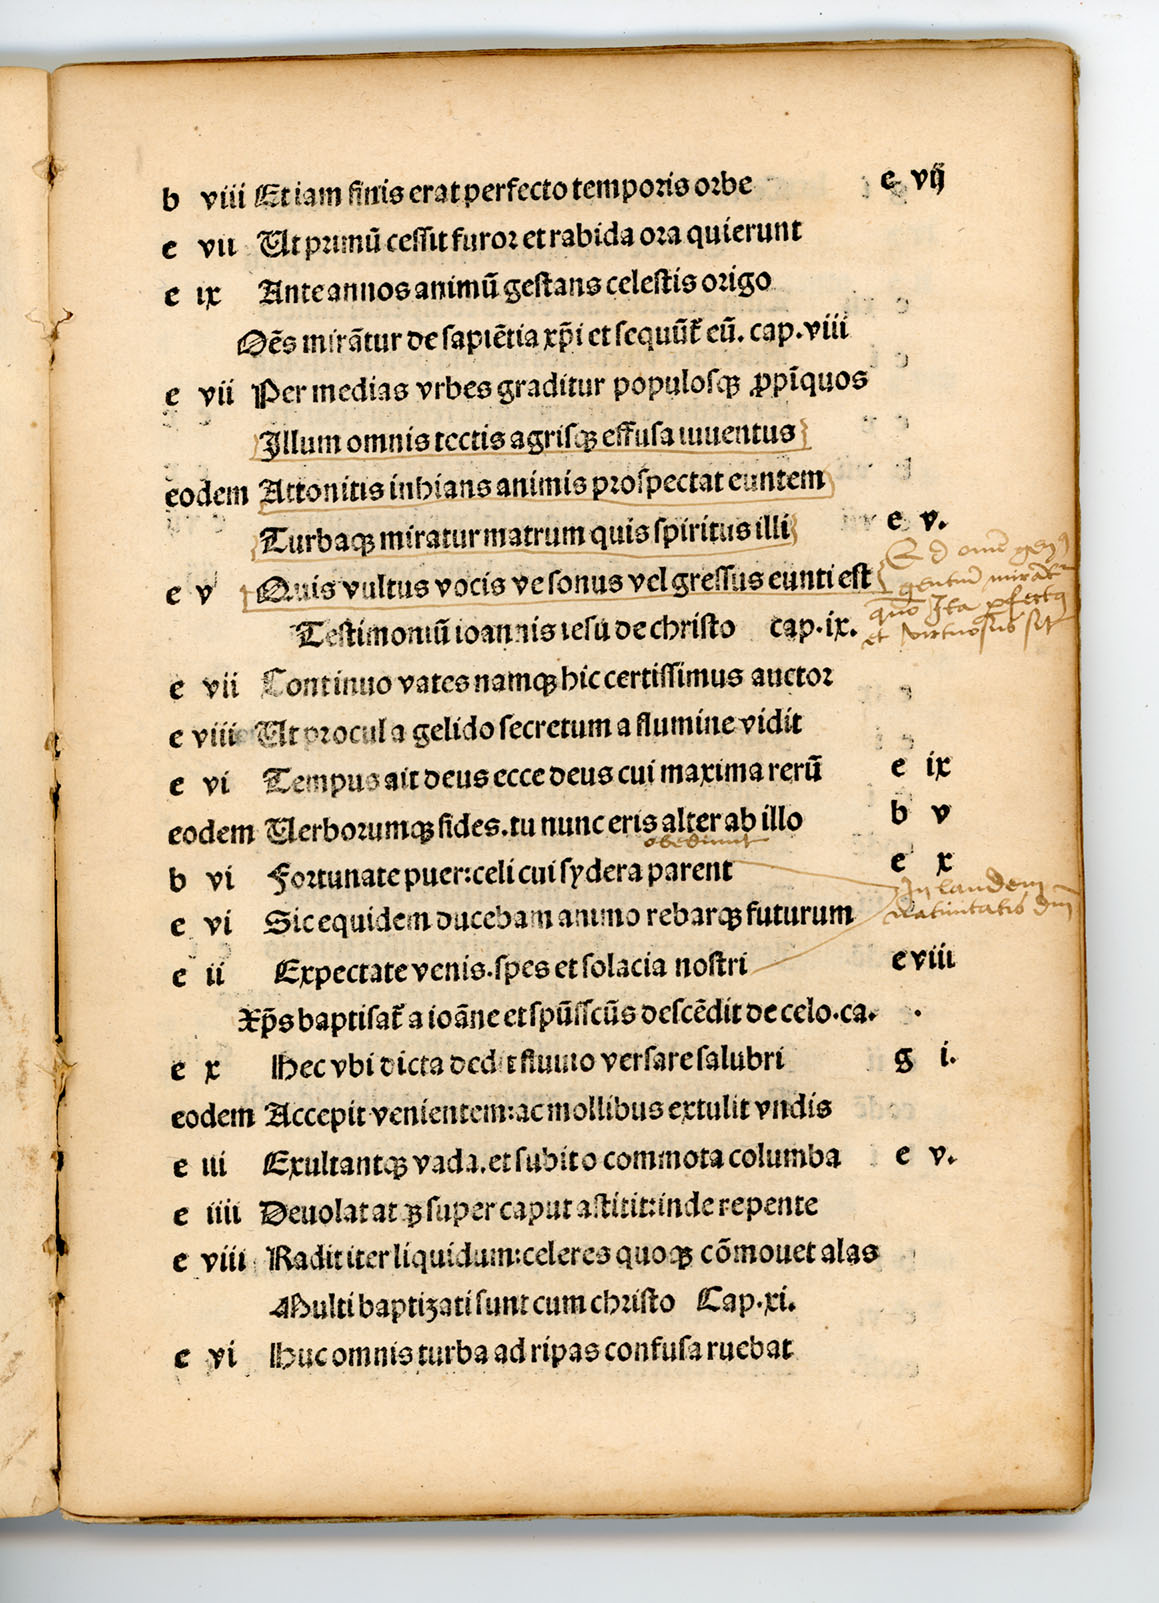 b viii Et iam finis erat perfecto temporis orbe e vij
e vii Ut primū cessit furor et rabida ora quierunt
e ix Ante annos animū gestans celestis origo
Oēs mirātur de sapiētia xp̄i et sequūt̃ eū. cap. viii
e vii Per medias vrbes graditur populosqꝫ ꝓpīquos
Illum omnis tectis agrisqꝫ effusa iuuentus
eodem Attonitis inhians animis prospectat euntem
Turbaqꝫ miratur matrum quis spiritus illi e v.
e v Quis vultus vocis ve sonus vel gressus eunti est
Ed omē genꝰ
gentiū mirātur
quō Ita ꝑfectꝰ
et virtuosus sit
Testimoniū ioannis iesu de christo cap. ix.
e vii Continuo vates namqꝫ hic certissimus auctor
e viii Ut procul a gelido secretum a flumine vidit
e vi Tempus ait deus ecce deus cui maxima rerū e ix
eodem Uerborumqꝫ fides. tu nunc eris alter ab illo b v
obediunt
b vi Fortunate puer: celi cui sydera parent e x
In laudem
natiuitatis dm̄
e vi Sic equidem ducebam animo rebarqꝫ futurum
e ii Expectate venis. spes et solacia nostri e viii
Xp̄s baptisat̃ a ioāne et spūsscūs descēdit de celo. ca. .
e x Hec vbi dicta dedit fluuio versare salubri g i.
eodem Accepit venientem: ac mollibus extulit vndis
e iii Exultantqꝫ vada. et subito commota columba e v.
e iiii Deuolat atqꝫ super caput astitit: inde repente
e viii Radit iter liquidum: celeres quoqꝫ cōmouet alas
Multi baptizati sunt cum christo Cap. xi.
e vi Huc omnis turba ad ripas confusa ruebat